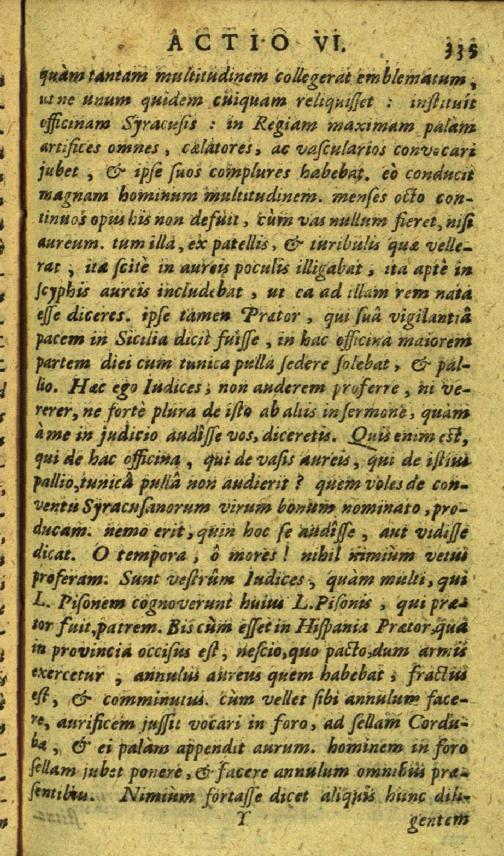 ACTIO VI. 335
quàm tantam multitudinem collegerat emblematum,
ut ne unum quidem cuiquam reliquiſſet : inſtituit
officinam Syracuſis : in Regiam maximam palàm
artifices omnes, cælatores, ac vaſcularios convocari
jubet, & ipſe ſuos complures habebat. eò conducit
magnam hominum multitudinem. menſes octo con-
tinuos opus his non defuit, cùm vas nullum fieret, niſi
aureum. tum illa, ex patellis, & turibulis quæ velle-
rat, ita ſcitè in aureis poculis illigabat, ita aptè in
ſcyphis aureis includebat, ut ea ad illam rem nata
eſſe diceres. ipſe tamen Prætor, qui ſuâ vigilantiâ
pacem in Sicilia dicit fuiſſe, in hac officina maiorem
partem diei cum tunica pulla ſedere ſolebat, & pal-
lio. Hæc ego Iudices; non auderem proferre, ni ve-
rerer, ne fortè plura de iſto ab aliis in ſermone, quàm
à me in judicio audiſſe vos, diceretis. Quis enim eſt,
qui de hac officina, qui de vaſis aureis, qui de iſtius
pallio, tunicâ pullâ non audierit ? quem voles de con-
ventu Syracuſanorum virum bonum nominato, pro-
ducam. nemo erit, quin hoc ſe audiſſe, aut vidiſſe
dicat. O tempora, ô mores ! nihil nimiùm vetus
proferam. Sunt veſtrûm Iudices, quàm multi, qui
L. Piſonem cognoverunt huius L. Piſonis, qui præ-
tor fuit, patrem. Bis cùm eſſet in Hiſpania Prætor, quâ
in provincia occiſus eſt, neſcio, quo pacto, dum armis
exercetur, annulus aureus quem habebat, fractus
eſt, & comminutus. cùm vellet ſibi annulum face-
re, aurificem juſſit vocari in foro, ad ſellam Cordu-
bæ, & ei palàm appendit aurum. hominem in foro
ſellam jubet ponere, & facere annulum omnibus præ-
ſentibus. Nimiùm fortaſſe dicet aliquis hunc dili-
Y gentem